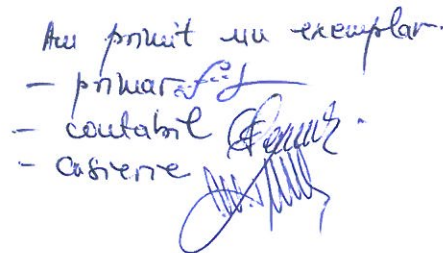 Am primit un exemplar.
- primar
- contabil
- Casierie